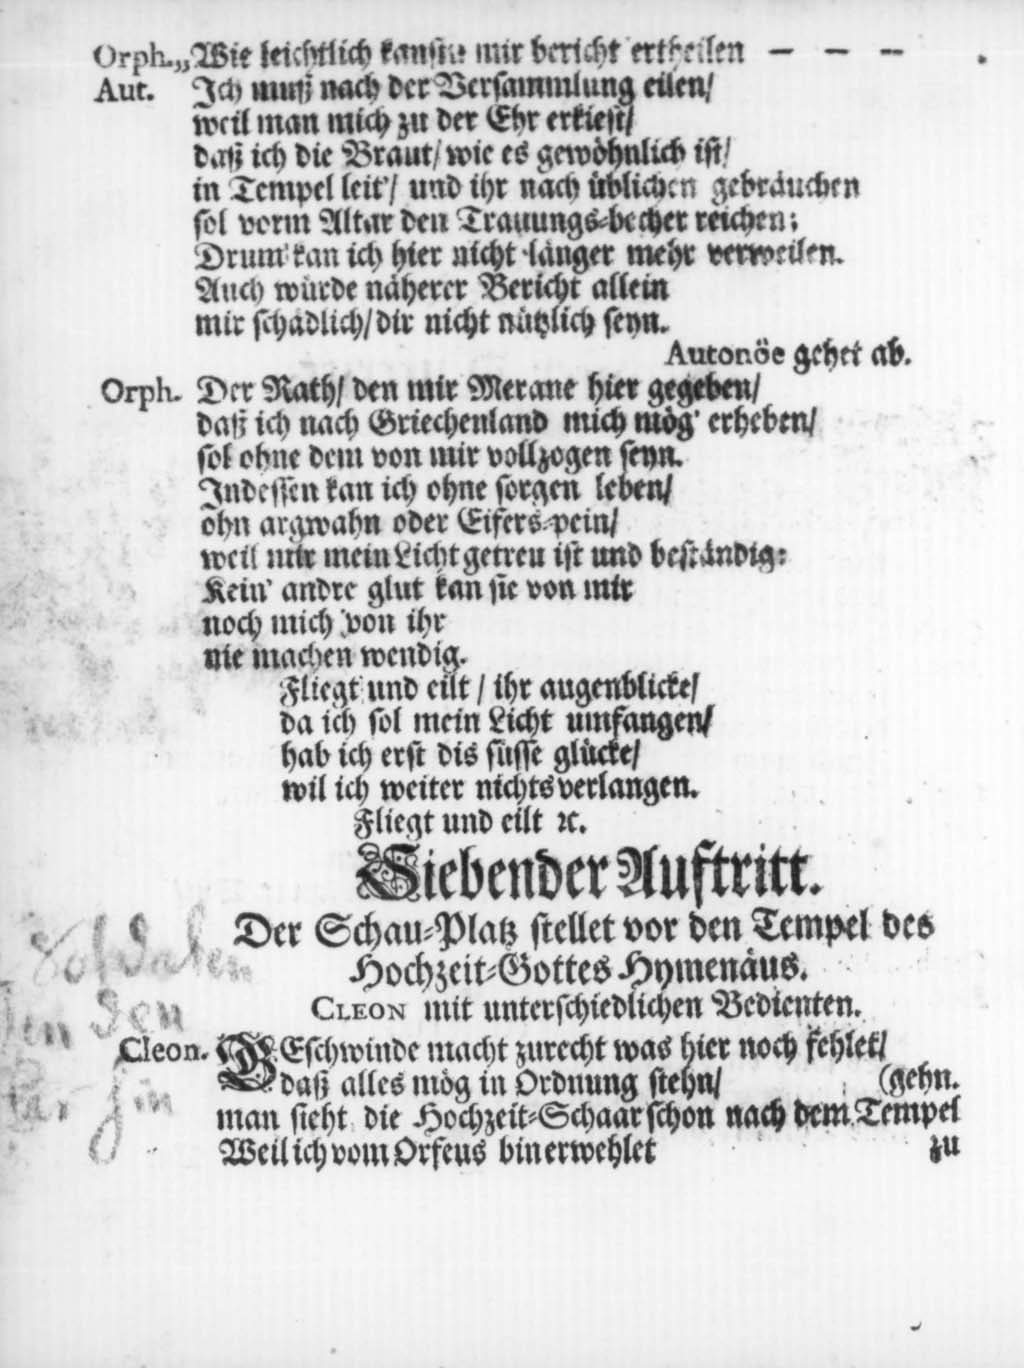 Orph. „Wie leichtlich kanstu mir bericht ertheilen — — —
Aut. Ich muß nach der Versammlung eilen/
weil man mich zu der Ehr erkiest/
daß ich die Braut/ wie es gewöhnlich ist/
in Tempel leit'/ und ihr nach üblichen gebräuchen
sol vorm Altar den Trauungs-becher reichen;
Drum kan ich hier nicht länger mehr verweilen.
Auch würde näherer Bericht allein
mir schädlich/ dir nicht nützlich seyn.
Autonöe gehet ab.
Orph. Der Rath/ den mir Merane hier gegeben/
daß ich nach Griechenland mich mög' erheben/
sol ohne dem von mir vollzogen seyn.
Indessen kan ich ohne sorgen leben/
ohn argwahn oder Eifers-pein/
weil mir mein Licht getreu ist und beständig:
Kein' andre glut kan sie von mir
noch mich von ihr
nie machen wendig.
Fliegt und eilt / ihr augenblicke/
da ich sol mein Licht umfangen/
hab ich erst dis süsse glücke/
wil ich weiter nichts verlangen.
Fliegt und eilt ꝛc.
Siebender Auftritt.
Der Schau-Platz stellet vor den Tempel des
Hochzeit-Gottes Hymenäus.
CLEON mit unterschiedlichen Bedienten.
Soldaten
den
hin
Cleon. GEschwinde macht zurecht was hier noch fehlet/
daß alles mög in Ordnung stehn/ (gehn.
man sieht die Hochzeit-Schaar schon nach dem Tempel
Weil ich vom Orfeus bin erwehlet
zu